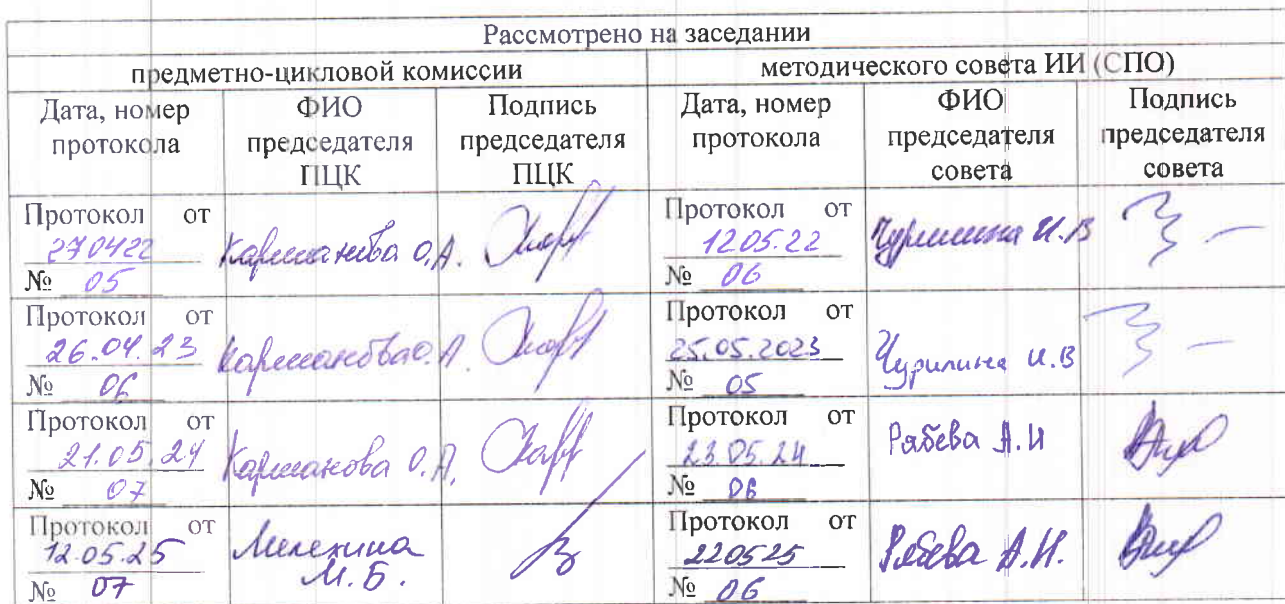 Рассмотрено на заседании
предметно-цикловой комиссии методического совета ИИ (СПО)
Дата, номер протокола ФИО председателя ПЦК Подпись председателя ПЦК Дата, номер протокола ФИО председателя совета Подпись председателя совета
Протокол от 270422 № 05 Карманова О.А. Протокол от 12.05.22 № 06 Чурилина И.В
Протокол от 26.04.23 № 06 Карманова О.А. Протокол от 25.05.2023 № 05 Чурилина И.В
Протокол от 21.05.24 № 07 Карманова О.А. Протокол от 23.05.24 № 06 Рябева А.И
Протокол от 12.05.25 № 07 М.Б. Протокол от 220525 № 06 Рябева А.И.